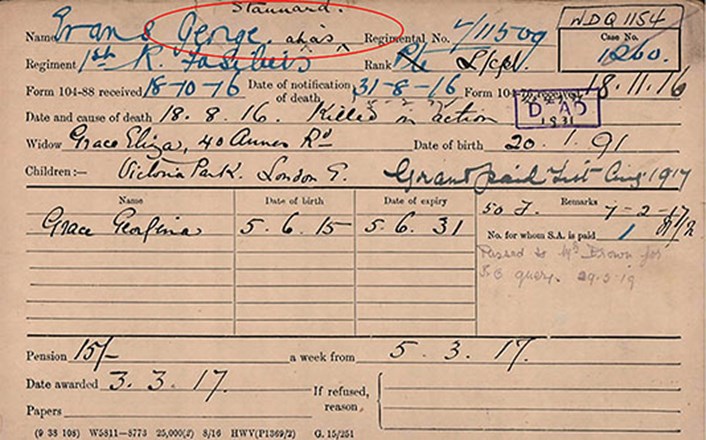 Stannard.
WDQ 1154
Name Evans George. alias Regimental No. 4/11509 Case No.
Regiment 1st R. Fusiliers Rank Pte L/cpl. 1260.
Form 104-88 received 18-10-16 Date of notification of death 31-8-16 Form 104 18.11.16
Date and cause of death 18.8.16. Killed in action D AD 1831
Widow Grace Eliza, 40 Annis Rd Date of birth 20.1.91
Children:— Victoria Park. London E. Grant paid List Aug 1917
Name Date of birth Date of expiry Remarks
Grace Georgina 5.6.15 5.6.31 7-2-17
No. for whom S.A. is paid 1
Passed to Mr Brown for
query. 29-5-19
Pension 15/- a week from 5.3.17.
Date awarded 3.3.17. If refused, reason,
Papers
(9 38 108) W5811—8773 25,000(2) 8/16 HWV(P1369/2) G. 15/251